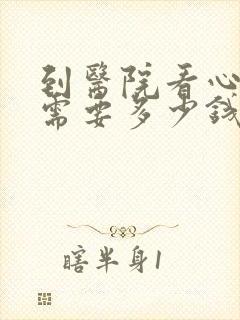 到醫院看心
需要多少錢
瞎半身1